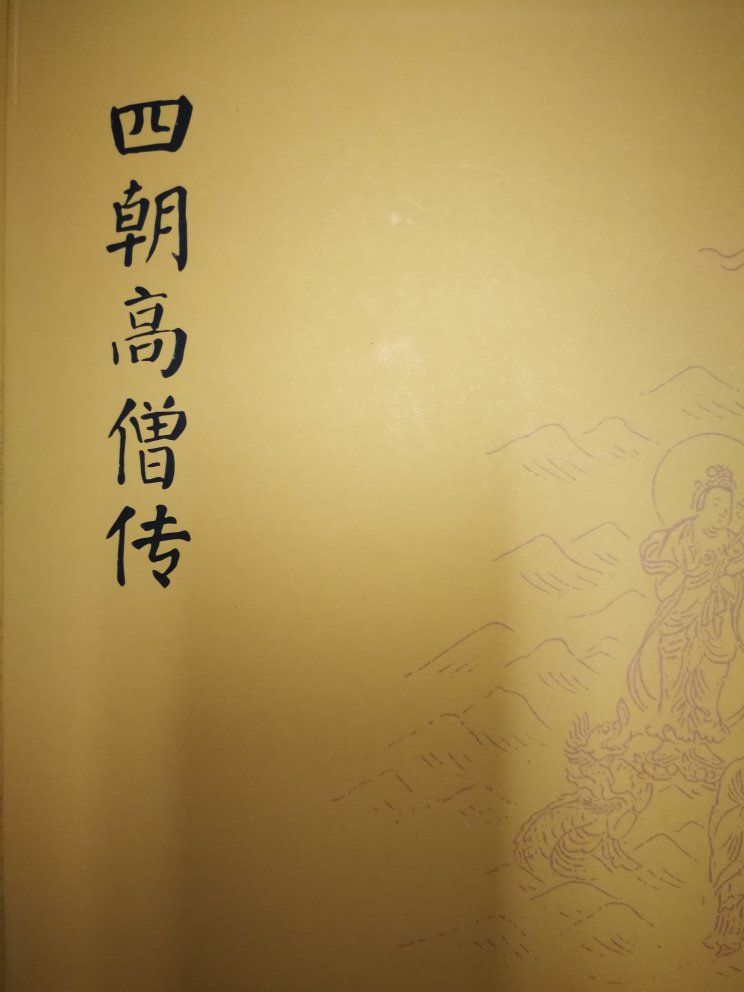 四朝高僧传